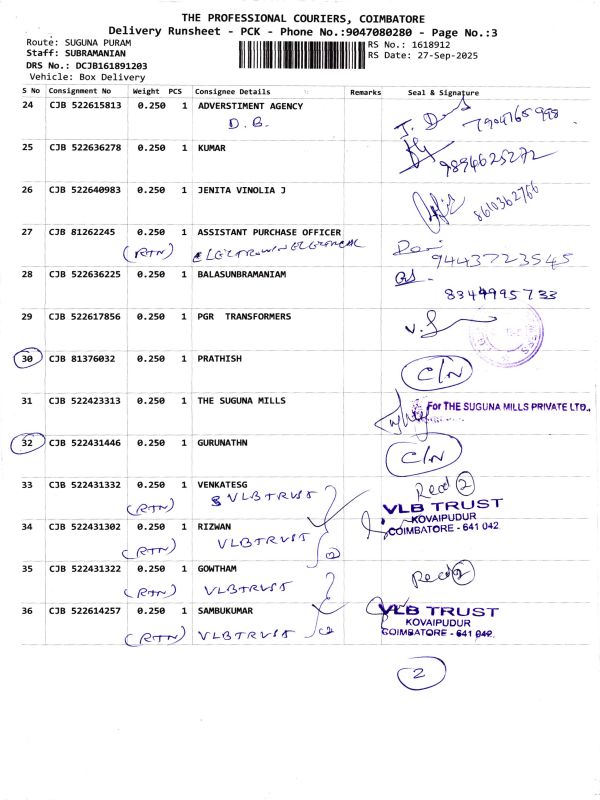 THE PROFESSIONAL COURIERS, COIMBATORE
Delivery Runsheet - PCK - Phone No.:9047080280 - Page No.:3
Route: SUGUNA PURAM RS No.: 1618912
Staff: SUBRAMANIAN RS Date: 27-Sep-2025
DRS No.: DCJB161891203
Vehicle: Box Delivery
S No Consignment No Weight PCS Consignee Details Remarks Seal & Signature
24 CJB 522615813 0.250 1 ADVERSTIMENT AGENCY
D.B. 7904765998
25 CJB 522636278 0.250 1 KUMAR
9894625272
26 CJB 522640983 0.250 1 JENITA VINOLIA J
8610362766
27 CJB 81262245 0.250 1 ASSISTANT PURCHASE OFFICER
(RTN) 9443723545
28 CJB 522636225 0.250 1 BALASUNBRAMANIAM
8344995733
29 CJB 522617856 0.250 1 PGR TRANSFORMERS
30 CJB 81376032 0.250 1 PRATHISH C/N
31 CJB 522423313 0.250 1 THE SUGUNA MILLS For THE SUGUNA MILLS PRIVATE LTD.,
32 CJB 522431446 0.250 1 GURUNATHN C/N
33 CJB 522431332 0.250 1 VENKATESG Recd 2
(RTN) VLBTRUST VLB TRUST
KOVAIPUDUR
34 CJB 522431302 0.250 1 RIZWAN COIMBATORE - 641 042
(RTN) VLBTRUST 2
35 CJB 522431322 0.250 1 GOWTHAM Recd 2
(RTN) VLBTRUST
36 CJB 522614257 0.250 1 SAMBUKUMAR VLB TRUST
KOVAIPUDUR
(RTN) VLBTRUST 2 COIMBATORE - 641 042.
2